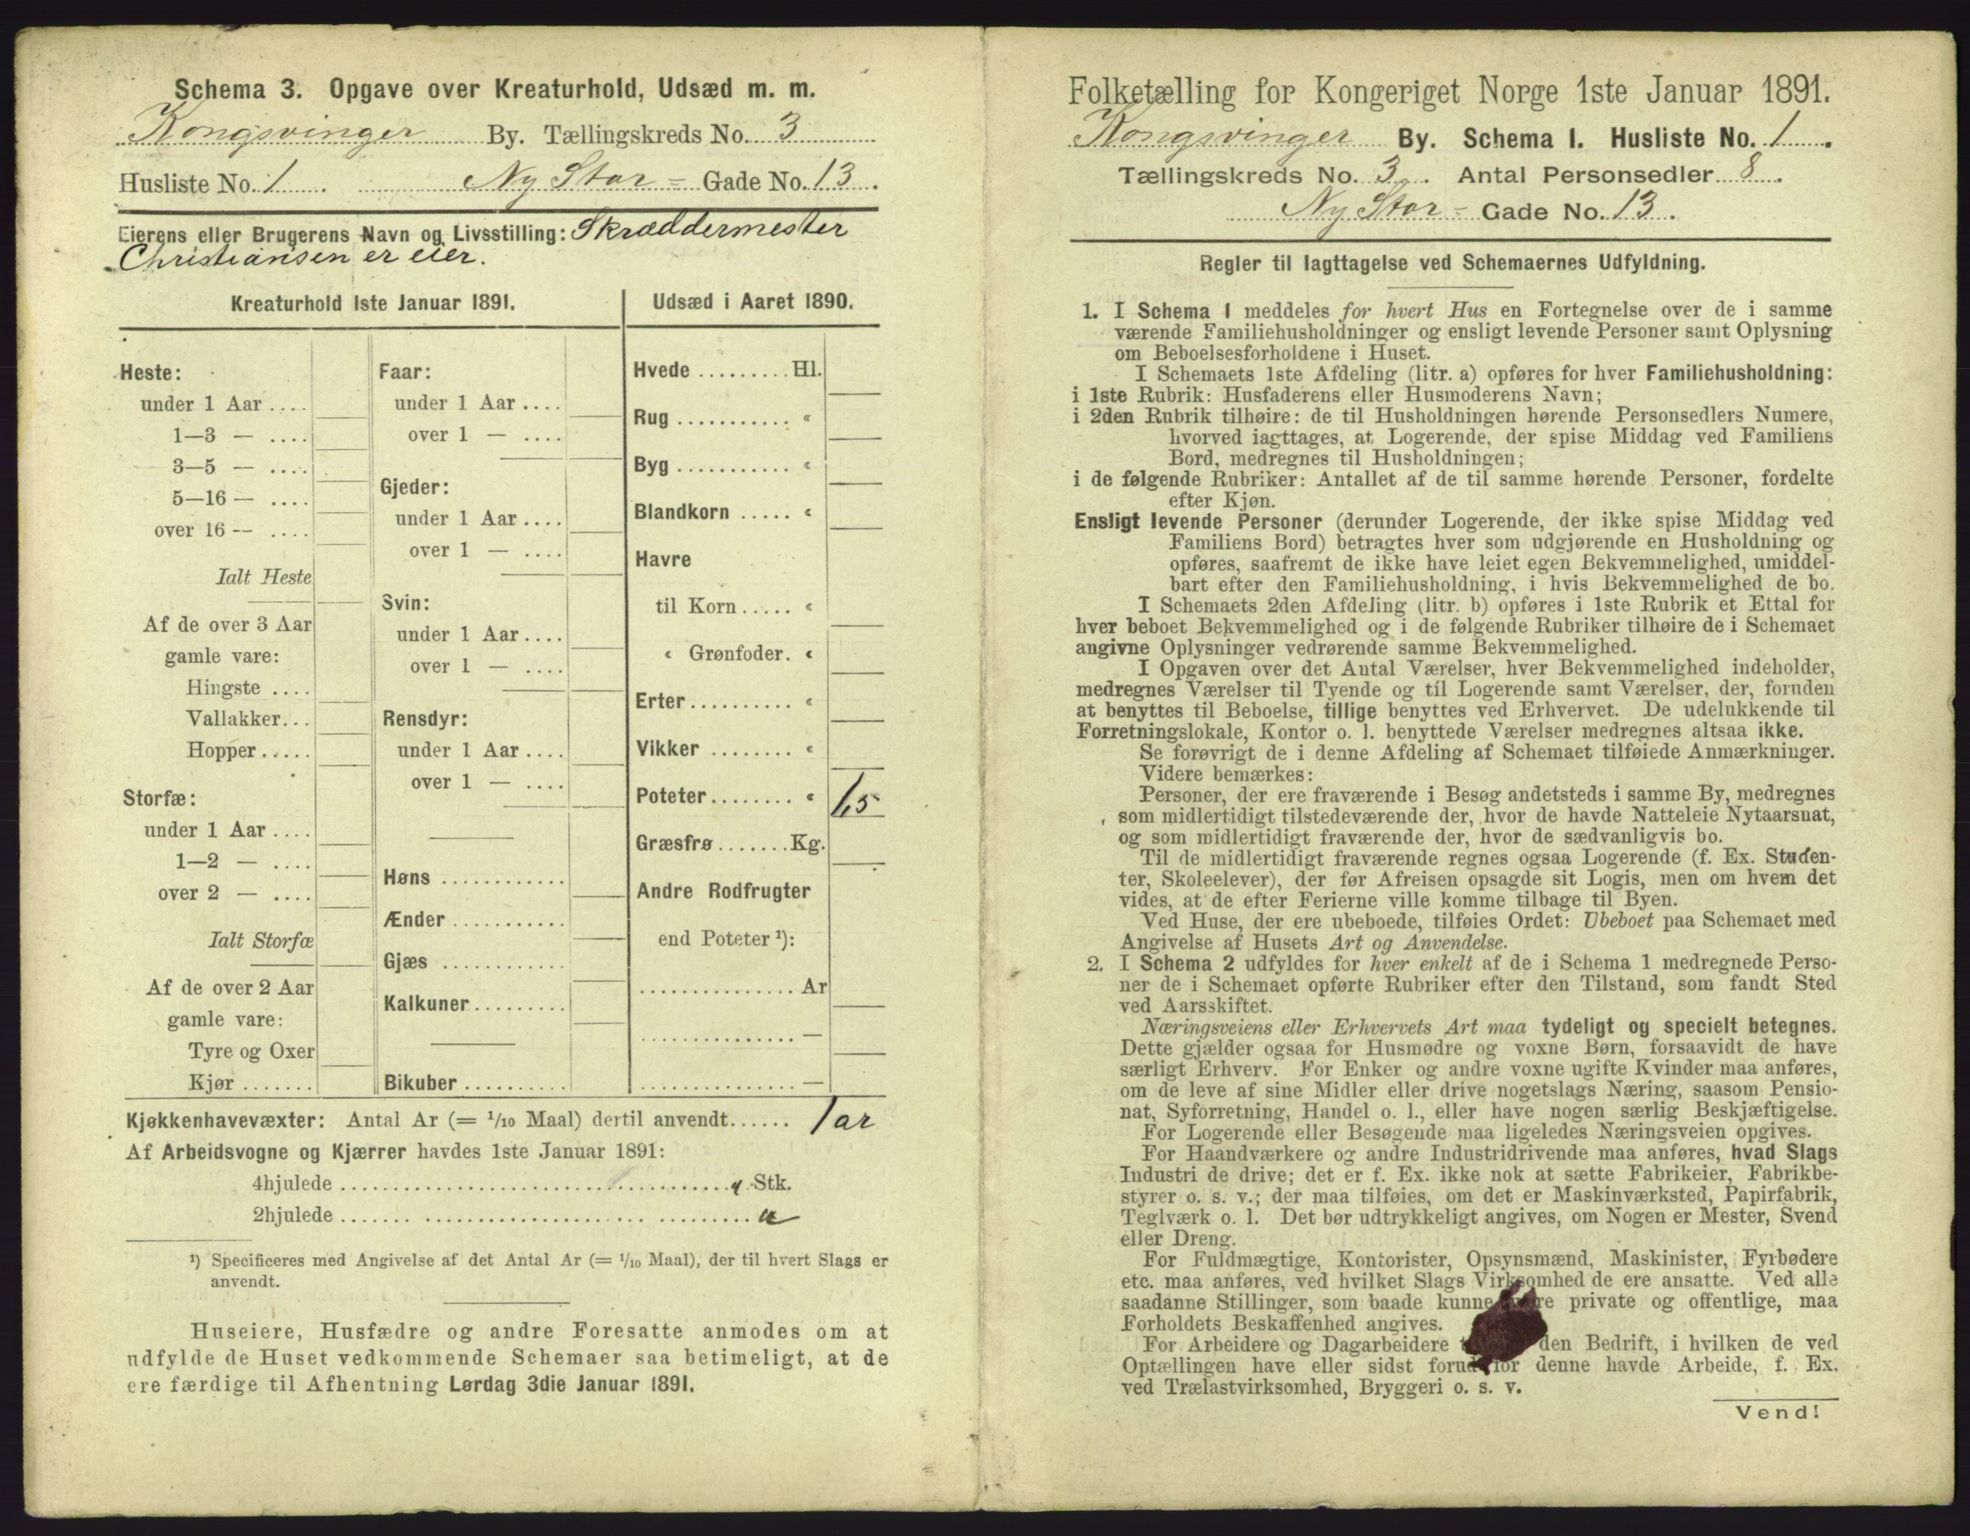 Schema 3. Opgave over Kreaturhold, Udsæd m. m.
Kongsvinger By. Tællingskreds No. 3
Husliste No. 1 Ny Stor- Gade No. 13.
Eierens eller Brugerens Navn og Livsstilling: Skræddermester
Christiansen er eier.
Kreaturhold 1ste Januar 1891.
Heste:
under 1 Aar ....
1—3 — ....
3—5 — ....
5—16 — ....
over 16 — ....
Ialt Heste
Af de over 3 Aar
gamle vare:
Hingste ....
Vallakker...
Hopper .....
Storfæ:
under 1 Aar ....
1—2 — ....
over 2 — ....
Ialt Storfæ
Af de over 2 Aar
gamle vare:
Tyre og Oxer
Kjør .......
Faar:
under 1 Aar ....
over 1 — ....
Gjeder:
under 1 Aar ....
over 1 — ....
Svin:
under 1 Aar ....
over 1 — ....
Rensdyr:
under 1 Aar ....
over 1 — ....
Høns ............
Ænder ...........
Gjæs ............
Kalkuner .........
Bikuber ..........
Udsæd i Aaret 1890.
Hvede ......... Hl.
Rug ........... «
Byg ........... «
Blandkorn ..... «
Havre
til Korn ..... «
« Grønfoder. «
Erter.......... «
Vikker ........ «
Poteter........ « 1,5
Græsfrø ....... Kg.
Andre Rodfrugter
end Poteter ¹):
............... Ar
............... —
............... —
Kjøkkenhavevæxter: Antal Ar (= 1/10 Maal) dertil anvendt...... 1 ar
Af Arbeidsvogne og Kjærrer havdes 1ste Januar 1891:
4hjulede .................................... " Stk.
2hjulede .................................... "
¹) Specificeres med Angivelse af det Antal Ar (= 1/10 Maal), der til hvert Slags er
anvendt.
Huseiere, Husfædre og andre Foresatte anmodes om at
udfylde de Huset vedkommende Schemaer saa betimeligt, at de
ere færdige til Afhentning Lørdag 3die Januar 1891.
Folketælling for Kongeriget Norge 1ste Januar 1891.
Kongsvinger By. Schema I. Husliste No. 1.
Tællingskreds No. 3. Antal Personsedler 8.
Ny Stor- Gade No. 13.
Regler til Iagttagelse ved Schemaernes Udfyldning.
1. I Schema 1 meddeles for hvert Hus en Fortegnelse over de i samme
værende Familiehusholdninger og ensligt levende Personer samt Oplysning
om Beboelsesforholdene i Huset.
I Schemaets 1ste Afdeling (litr. a) opføres for hver Familiehusholdning:
i 1ste Rubrik: Husfaderens eller Husmoderens Navn;
i 2den Rubrik tilhøire: de til Husholdningen hørende Personsedlers Numere,
hvorved iagttages, at Logerende, der spise Middag ved Familiens
Bord, medregnes til Husholdningen;
i de følgende Rubriker: Antallet af de til samme hørende Personer, fordelte
efter Kjøn.
Ensligt levende Personer (derunder Logerende, der ikke spise Middag ved
Familiens Bord) betragtes hver som udgjørende en Husholdning og
opføres, saafremt de ikke have leiet egen Bekvemmelighed, umiddel-
bart efter den Familiehusholdning, i hvis Bekvemmelighed de bo.
I Schemaets 2den Afdeling (litr. b) opføres i 1ste Rubrik et Ettal for
hver beboet Bekvemmelighed og i de følgende Rubriker tilhøire de i Schemaet
angivne Oplysninger vedrørende samme Bekvemmelighed.
I Opgaven over det Antal Værelser, hver Bekvemmelighed indeholder,
medregnes Værelser til Tyende og til Logerende samt Værelser, der, foruden
at benyttes til Beboelse, tillige benyttes ved Erhvervet. De udelukkende til
Forretningslokale, Kontor o. l. benyttede Værelser medregnes altsaa ikke.
Se forøvrigt de i denne Afdeling af Schemaet tilføiede Anmærkninger.
Videre bemærkes:
Personer, der ere fraværende i Besøg andetsteds i samme By, medregnes
som midlertidigt tilstedeværende der, hvor de havde Natteleie Nytaarsnat,
og som midlertidigt fraværende der, hvor de sædvanligvis bo.
Til de midlertidigt fraværende regnes ogsaa Logerende (f. Ex. Studen-
ter, Skoleelever), der før Afreisen opsagde sit Logis, men om hvem det
vides, at de efter Ferierne ville komme tilbage til Byen.
Ved Huse, der ere ubeboede, tilføies Ordet: Ubeboet paa Schemaet med
Angivelse af Husets Art og Anvendelse.
2. I Schema 2 udfyldes for hver enkelt af de i Schema 1 medregnede Perso-
ner de i Schemaet opførte Rubriker efter den Tilstand, som fandt Sted
ved Aarsskiftet.
Næringsveiens eller Erhvervets Art maa tydeligt og specielt betegnes.
Dette gjælder ogsaa for Husmødre og voxne Børn, forsaavidt de have
særligt Erhverv. For Enker og andre voxne ugifte Kvinder maa anføres,
om de leve af sine Midler eller drive nogetslags Næring, saasom Pensio-
nat, Syforretning, Handel o. l., eller have nogen særlig Beskjæftigelse.
For Logerende eller Besøgende maa ligeledes Næringsveien opgives.
For Haandværkere og andre Industridrivende maa anføres, hvad Slags
Industri de drive; det er f. Ex. ikke nok at sætte Fabrikeier, Fabrikbe-
styrer o. s. v.; der maa tilføies, om det er Maskinværksted, Papirfabrik,
Teglværk o. l. Det bør udtrykkeligt angives, om Nogen er Mester, Svend
eller Dreng.
For Fuldmægtige, Kontorister, Opsynsmænd, Maskinister, Fyrbødere
etc. maa anføres, ved hvilket Slags Virksomhed de ere ansatte. Ved alle
saadanne Stillinger, som baade kunne være private og offentlige, maa
Forholdets Beskaffenhed angives.
For Arbeidere og Dagarbeidere den Bedrift, i hvilken de ved
Optællingen have eller sidst forud for denne havde Arbeide, f. Ex.
ved Trælastvirksomhed, Bryggeri o. s. v.
Vend!